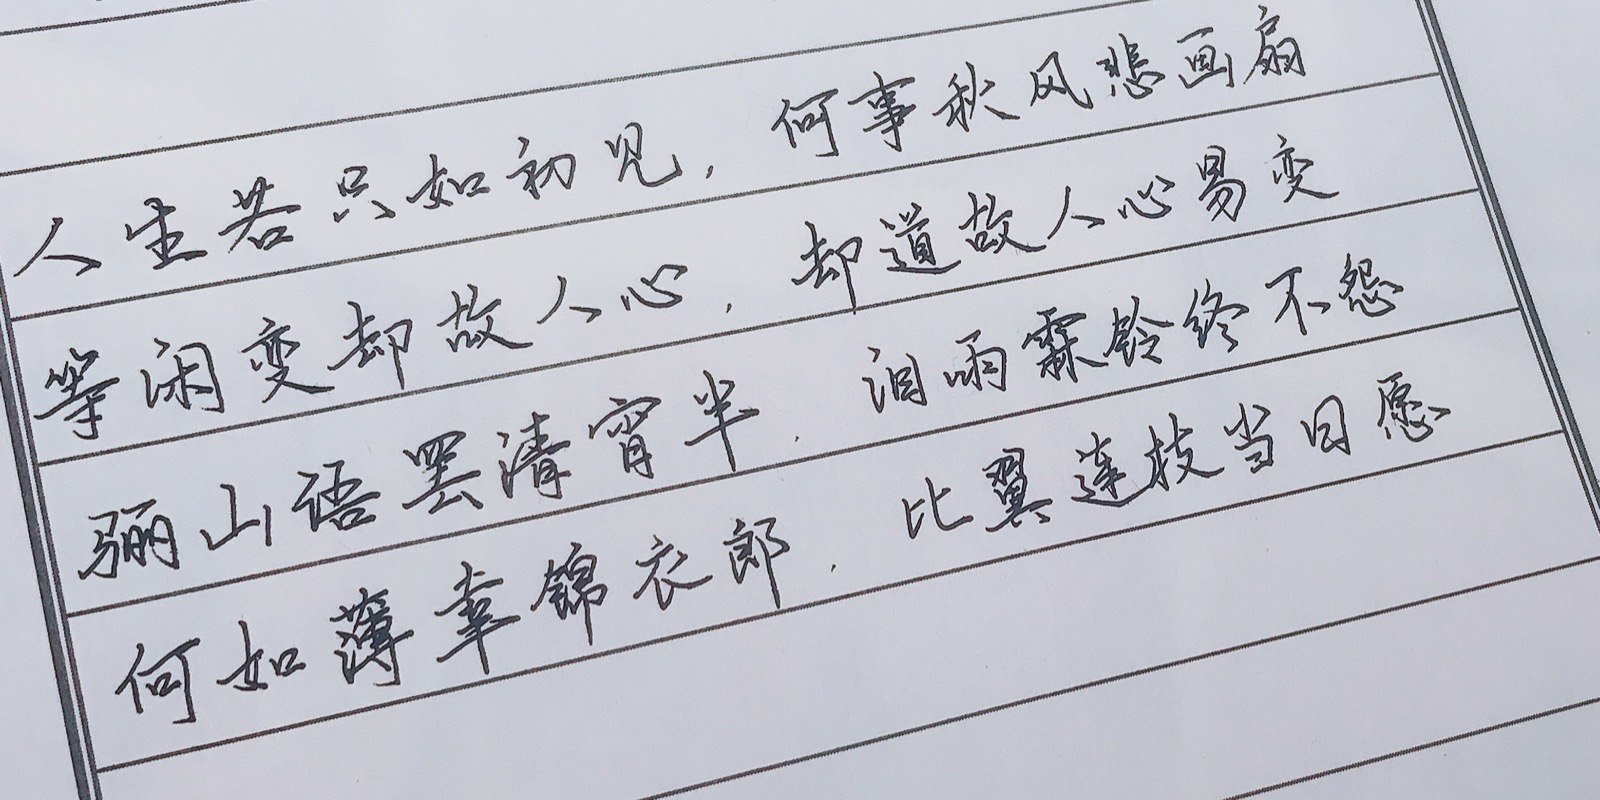 人生若只如初见，何事秋风悲画扇
等闲变却故人心，却道故人心易变
骊山语罢清宵半，泪雨霖铃终不怨
何如薄幸锦衣郎，比翼连枝当日愿